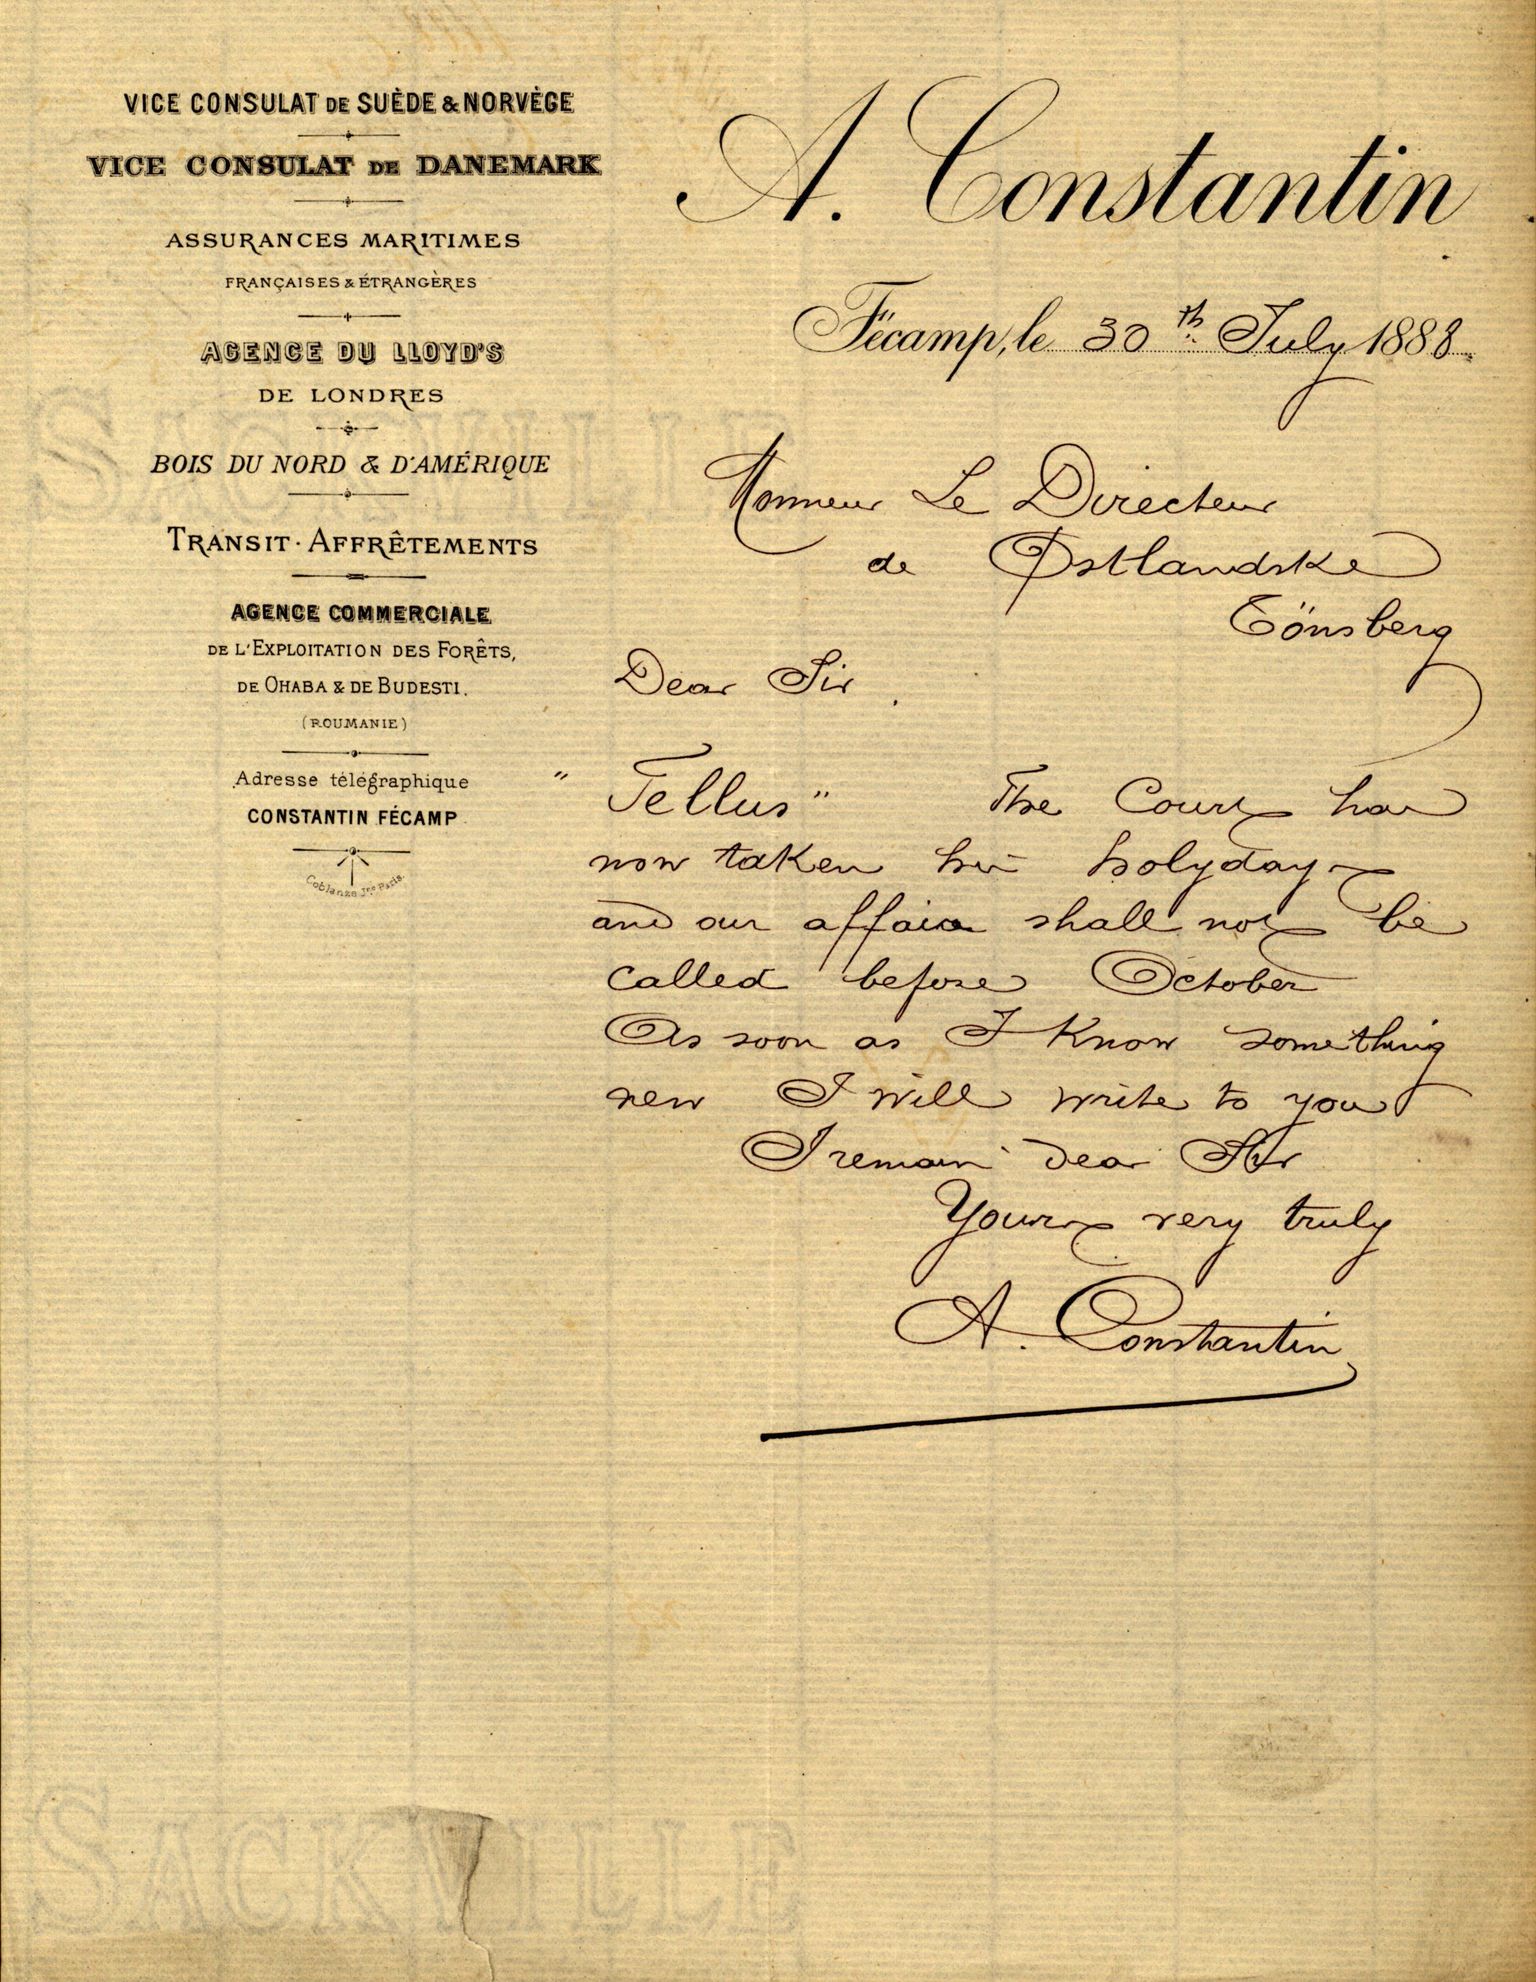 VICE CONSULAT DE SUÈDE & NORVÈGE
VICE CONSULAT DE DANEMARK
ASSURANCES MARITIMES
FRANÇAISES & ÉTRANGÈRES
AGENCE DU LLOYD'S
DE LONDRES
BOIS DU NORD & D'AMÉRIQUE
TRANSIT · AFFRÊTEMENTS
AGENCE COMMERCIALE
DE L'EXPLOITATION DES FORÊTS,
DE OHABA & DE BUDESTI.
(ROUMANIE)
Adresse télégraphique
CONSTANTIN FÉCAMP
Coblanze Jne Paris.
A. Constantin
Fécamp, le 30th July 1888
Monsieur Le Directeur
de Østlandske
Tönsberg
Dear Sir
"Tellus" The Court has
now taken his holyday
and our affair shall not be
called before October
As soon as I know something
new I will write to you
I remain dear Sir
Yours very truly
A. Constantin
SACKVILLE
SACKVILLE